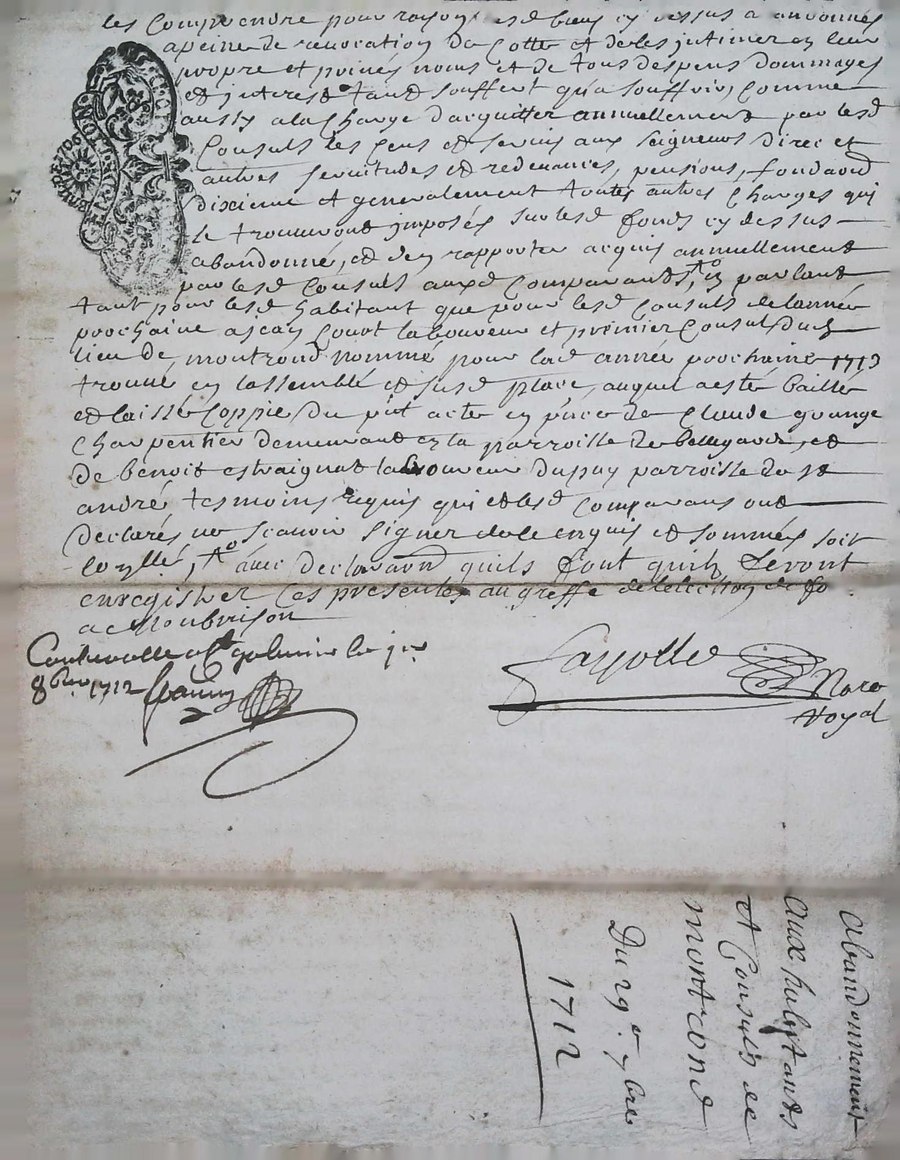 les comprendre pour rayon esd biens cy dessus a andonnés
a peine de revocation de cotte et de les intimer en leur
propre et privés noms et de tous despens dommages
et interest tant souffert qu'a souffrir, comme
aussy a la charge d'acquitter annuellement par lesd
Consuls les cens et servis aux seigneurs direc et
autres servitudes et redevances, pensions,
dixieme et generalement toutes autres charges qui
se trouveront imposés sur lesd fonds cy dessus
abandonné, et d'en rapporter acquis annuellement
par lesd Consuls auxd Comparants, en parlant
tant pour lesd habitant que pour lesd Consuls de lannée
prochaine a laboureur et premier Consul dud
lieu de montrond nommé pour lad année prochaine 1713
trouvé en lassemblé et susd place, auquel a esté baillé
et laissé Coppie du pnt acte en pnce de Claude grange
Charpentier demeurant en la parroisse de bellegarde, et
de benoit laboureur du puy parroisse de st
andré, tesmoins requis qui et lesd Comparans ont
declarés ne scavoir signer de ce enquis et sommés soit
avec declaration quils font quils feront
enregistrer ces presentes au greffe de lelection de fo
a Montbrison
Controllé a st galmier le 1er
8bre 1712
Fayolle Nore
Royal
Abandonnement
aux habitants
et Consuls de
montrond
Du 29e 7bre
1712